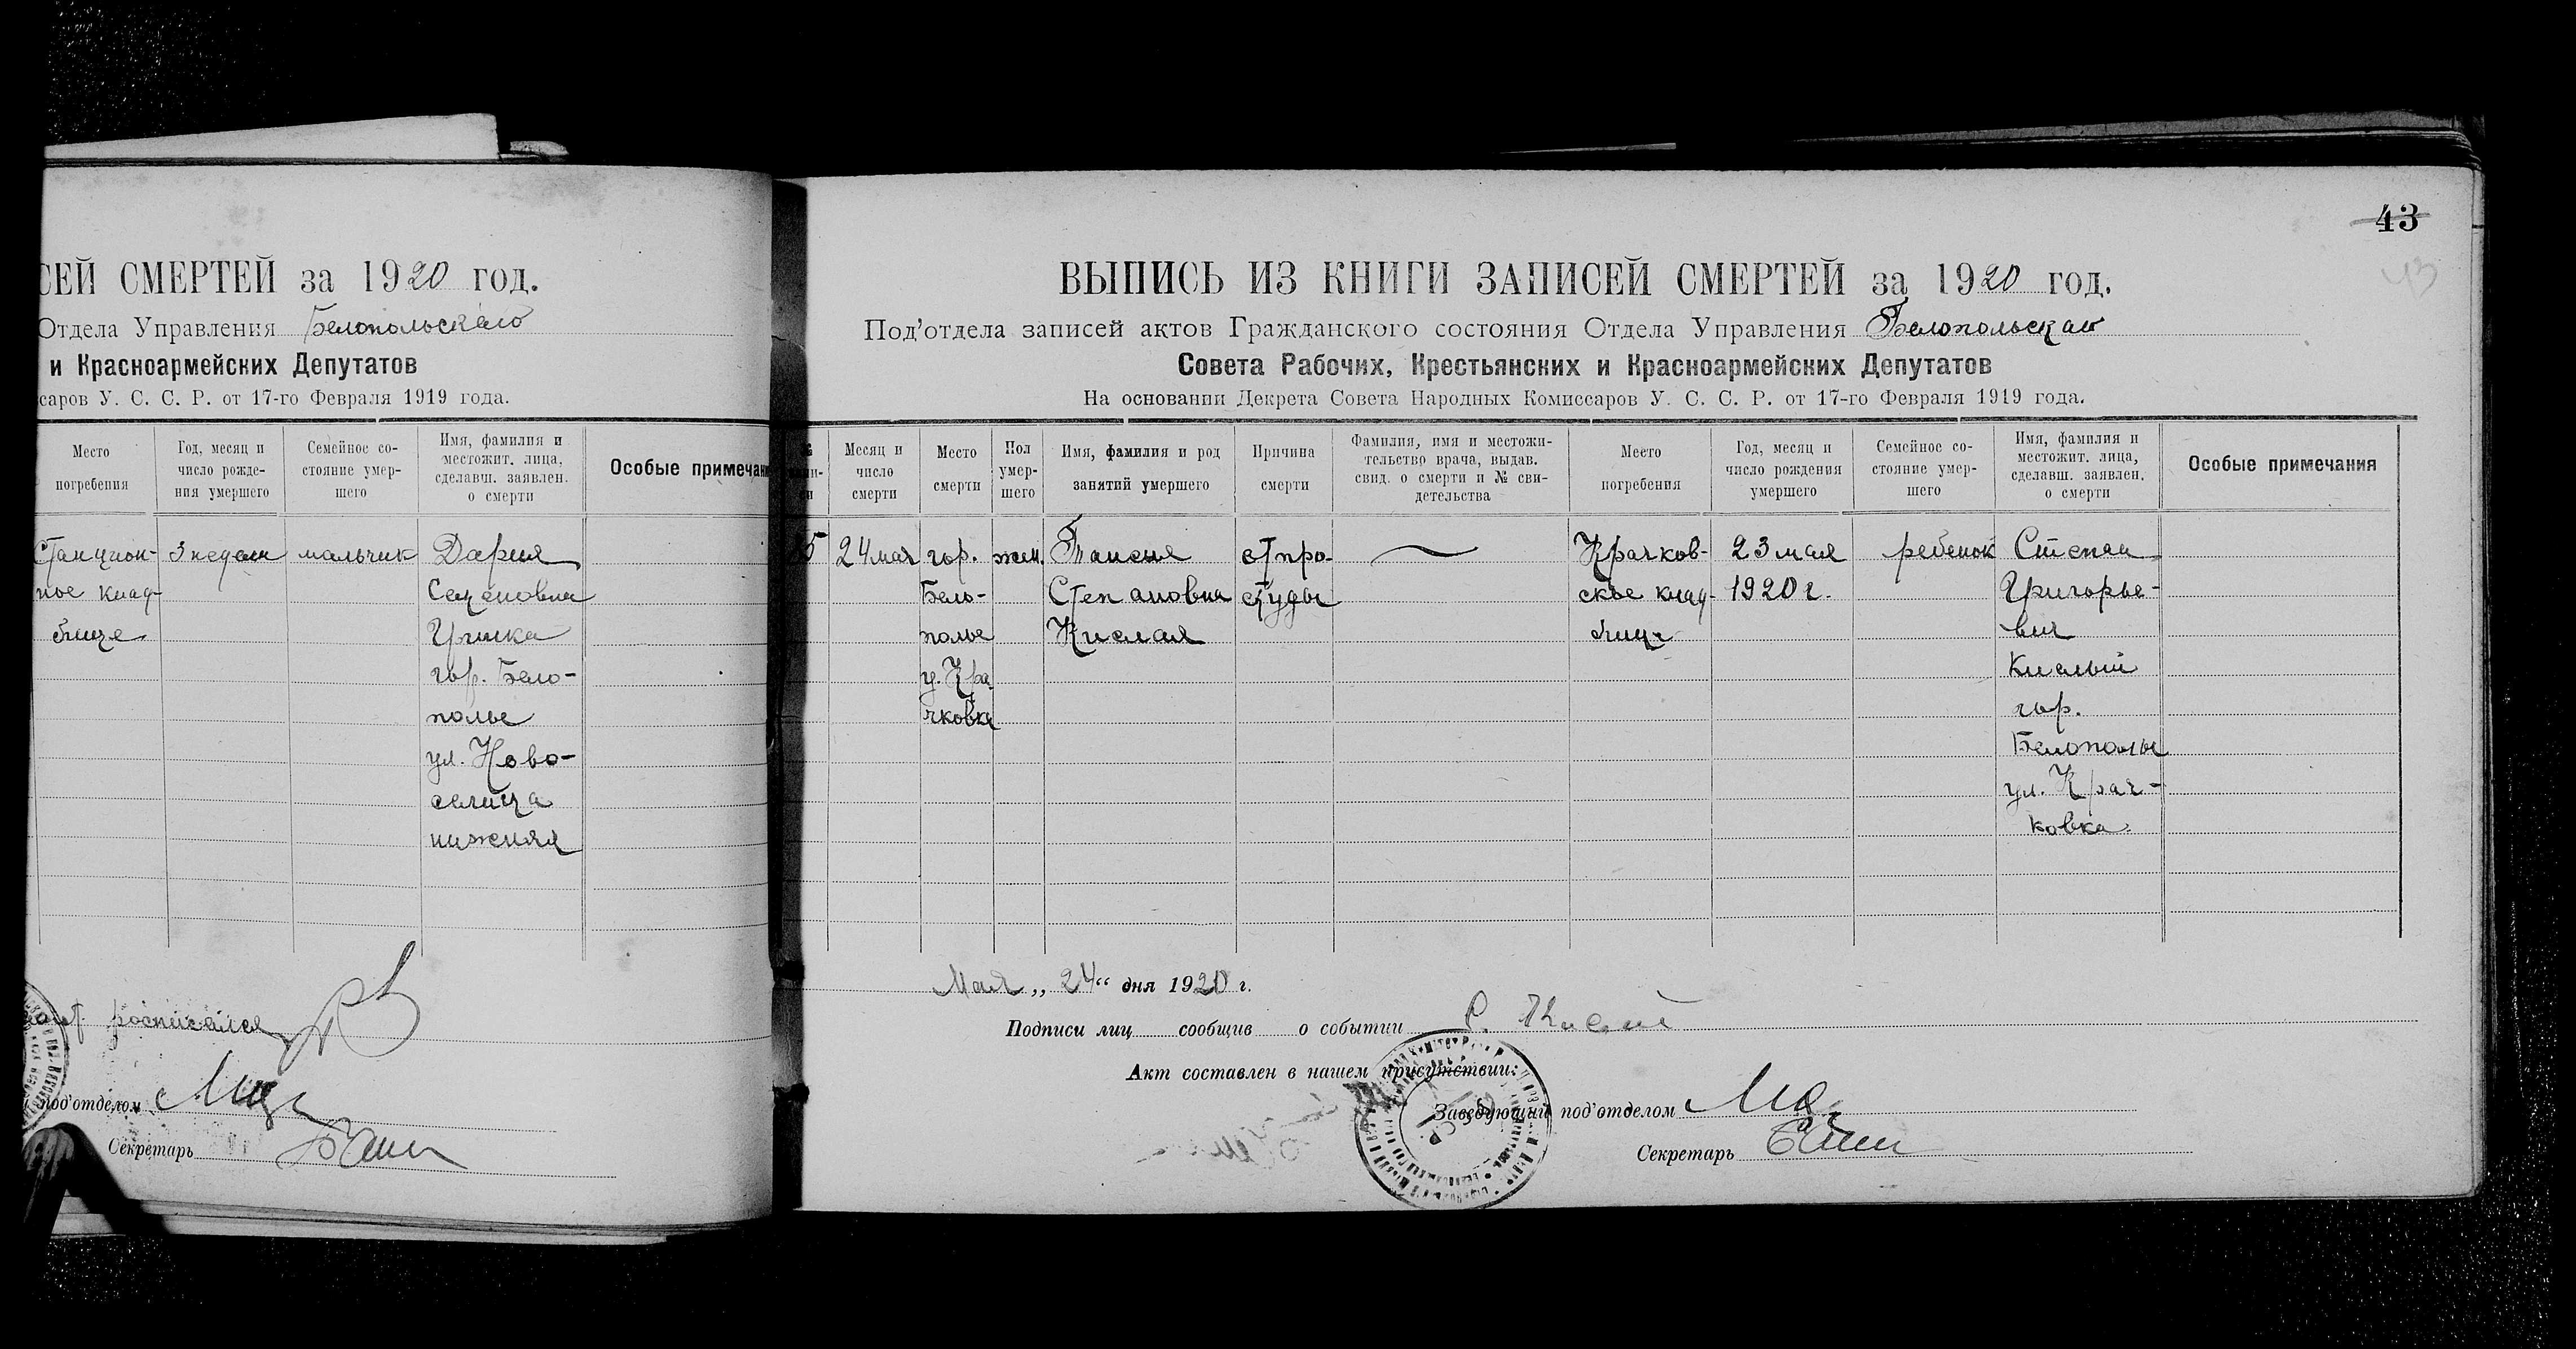 СЕЙ СМЕРТЕЙ за 1920 год.
Отдела Управления Белопольского
и Красноармейских Депутатов
ссаров У. С. С. Р. от 17-го Февраля 1919 года.
Место погребения
Год, месяц и число рожде-ния умершего
Семейное со-стояние умер-шего
Имя, фамилия и местожит. лица, сделавш. заявлен. о смерти
Особые примечани
Станцион-
ное клад-
бище
3 недели
мальчик
Дария
Семеновна
Гришка
гор. Бело-
полье
ул. Ново-
селица
нижняя
росписался
под'отделом
Секретарь
43
43
ВЫПИСЬ ИЗ КНИГИ ЗАПИСЕЙ СМЕРТЕЙ за 1920 год.
Под'отдела записей актов Гражданского состояния Отдела Управления Белопольская
Совета Рабочих, Крестьянских и Красноармейских Депутатов
На основании Декрета Совета Народных Комиссаров У. С. С. Р. от 17-го Февраля 1919 года.
Месяц и число смерти
Место смерти
Пол умер-шего
Имя, фамилия и род занятий умершего
Причина смерти
Фамилия, имя и местожи-тельство врача, выдав. свид. о смерти и № сви-детельства
Место погребения
Год, месяц и число рождения умершего
Семейное со-стояние умер-шего
Имя, фамилия и местожит. лица, сделавш. заявлен. о смерти
Особые примечания
5
24 мая
гор.
Бело-
полье
у. Кра-
чковка
жен.
Таисия
Степановна
Кислая
от про-
студы
Крачков-
ское клад-
бище
23 мая
1920 г.
ребенок
Степан
Григорье-
вич
Кислый
гор.
Белополье
ул. Крач-
ковка.
Мая „ 24 “ дня 1920 г.
Подписи лиц сообщив о событии С. Кислий
Акт составлен в нашем присутствии:
Заведующий под'отделом
Секретарь